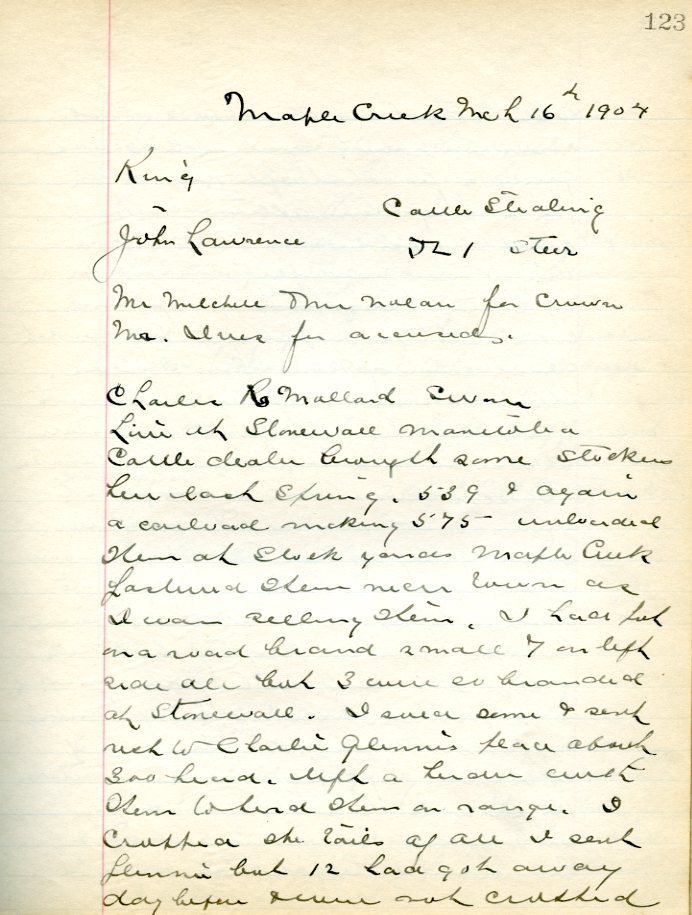 123
Maple Creek Mch 16th 1904
King
Cattle Stealing
John Lawrence
1 Steer
Mr Mitchell & Mr Nolan for Crown
Mr. Ives for accused.
Charles R Mallard Sworn
Live at Stonewall Manitoba
Cattle dealer brought some stockers
here last Spring. 539 & again
a carload making 575 unloaded
them at Stock yards Maple Creek
pastured them near town as
I was selling them. I had put
on a road brand small 7 on left
side all but 3 were so branded
at Stonewall. I sold some & sent
rest to Charlie Glennis place about
300 head. left a man with
them to herd them on range. I
cropped the tails of all I sent
Glennis but 12 had got away
day before & were not cropped